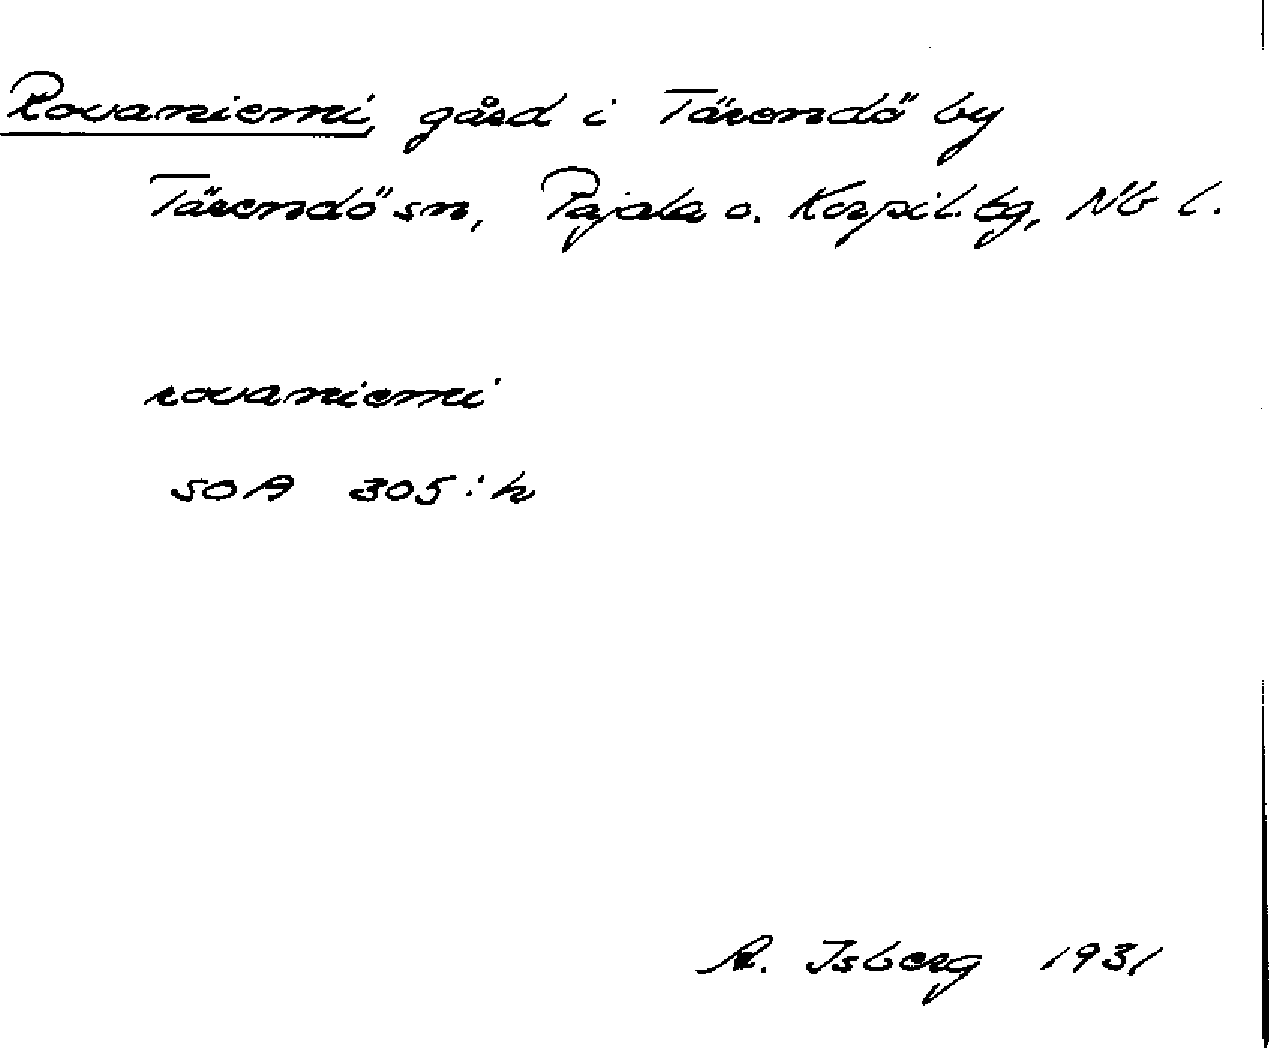 Rovaniemi, gård i Tärendö by
Tärendö sn, Pajala o. Korpil. tg, Nb l.
rovaniemi
SOA 305:h
A. Isberg 1931